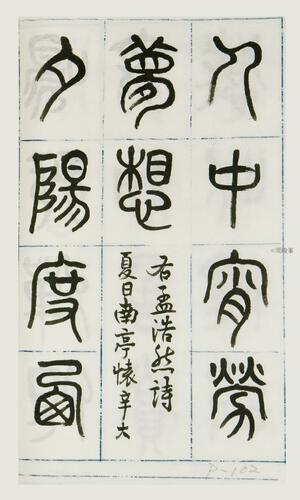 人中宵勞
夢想
右孟浩然詩
夏日南亭懷辛大
夕陽度西
P-102